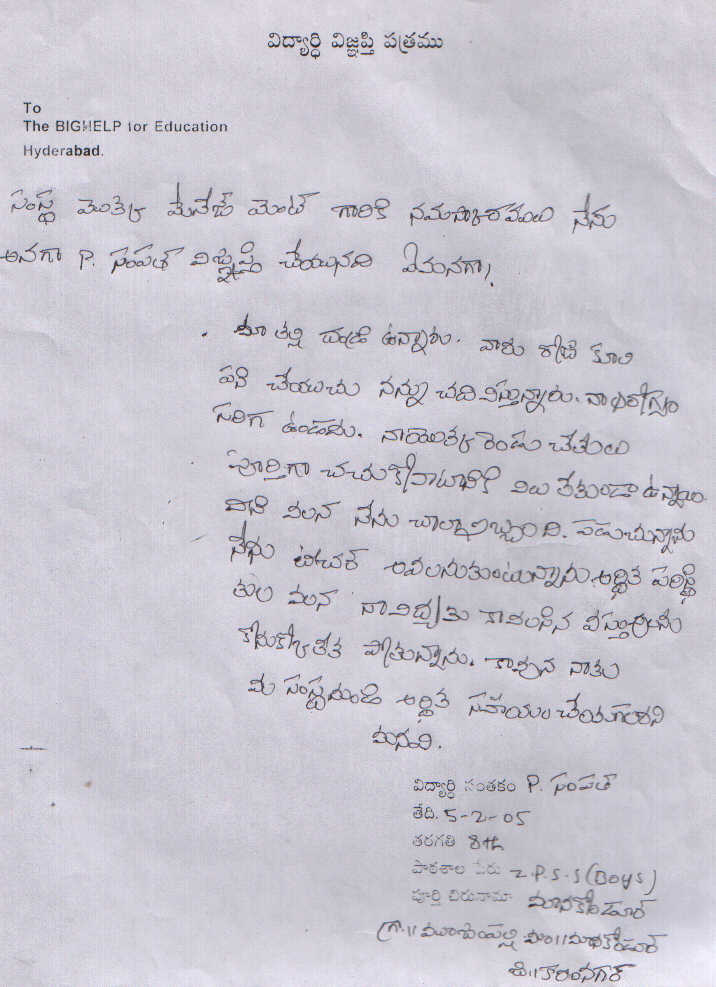 విద్యార్ధి విజ్ఞప్తి పత్రము
To
The BIGHELP for Education
Hyderabad.
సంస్థ యొక్క మేనేజ్ మెంట్ గారికి నమస్కారములు నేను
అనగా P. సంపత్ విజ్ఞప్తి చేయునది ఏమనగా,
మా తల్లి తండ్రి ఉన్నారు. వారు రోజు కూలి
పని చేయుచు నన్ను చదివిస్తున్నారు. నా ఆరోగ్యం
సరిగా ఉండదు. నాయొక్క రెండు చేతులు
పూర్తిగా చచ్చు
నేను చాలా ఇబ్బంది. పడుచున్నాను
నేను టీచర్ అవలనుకుంటున్నాను. ఆర్థిక పరిస్థి
తుల వలన నా విద్యకు కావలసిన వస్తువులను
కొనుక్కోలేక పోతున్నాను. కావున నాకు
మీ సంస్థనుండి ఆర్థిక సహాయం చేయగలరని
మనవి.
విద్యార్ధి సంతకం P. సంపత్
తేది. 5-2-05
తరగతి 8th
పాఠశాల పేరు Z.P.S.S (Boys)
పూర్తి చిరునామా మానకొండూర్
గ్రా॥ ముంజంపల్లి మం॥ మానకొండూర్
జి॥ కరీంనగర్